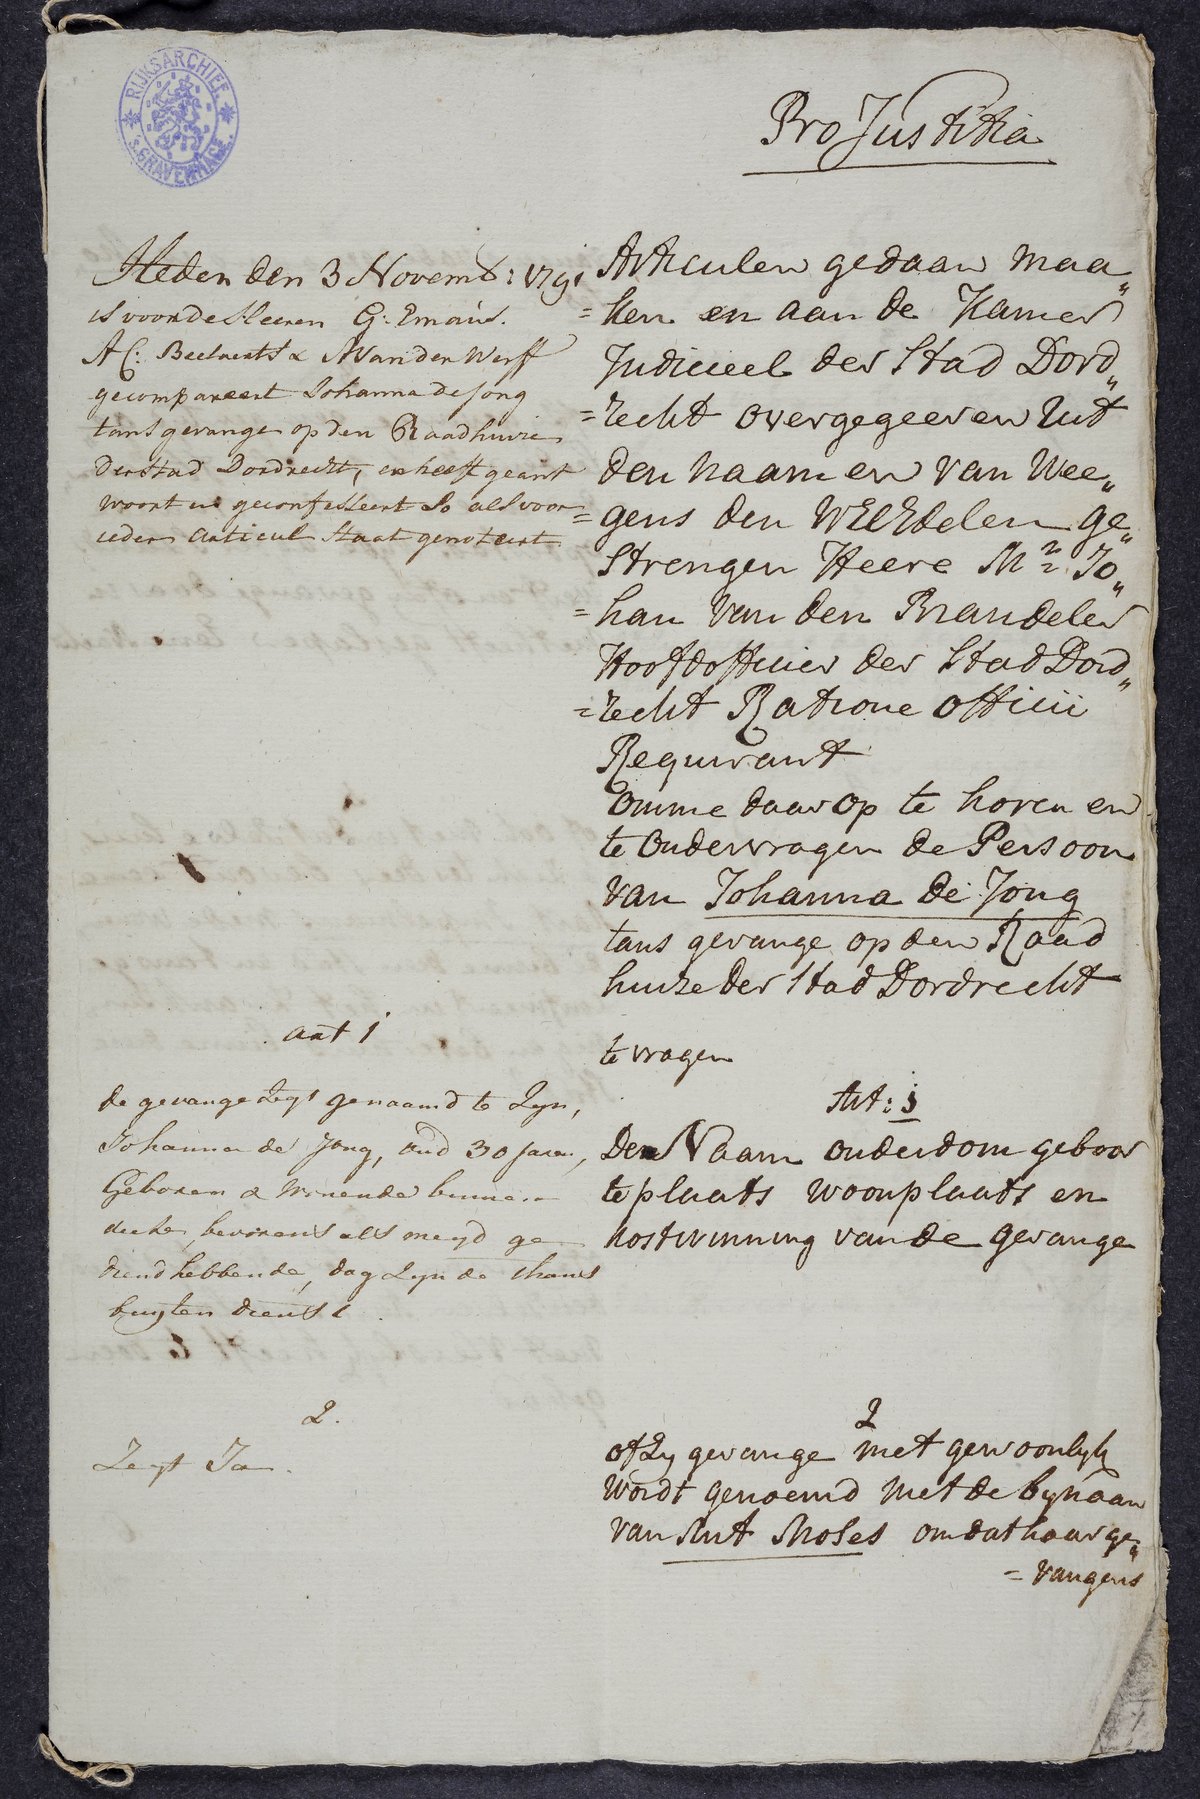 RIJKSARCHIEF
'S GRAVENHAGE.
Pro Justitia
Heden den 3 Novemb: 1791
is voor de Heeren G: Emaus.
A C: Beelaerts & A Van der Werff
gecompareert Johanna de Jong
tans gevange op den Raadhuize
der stad Dordrecht, en heeft geant
woort en geconfesseert so als voor
ieder articul staat genoteert.
Articulen gedaan maa„
=ken en aan de Kamer
Judicieel der Stad Dord„
=recht overgegeeven uit
den naam en van Wee„
=gens den WelEdelen ge„
strengen Heere Mr Jo„
=han van den Brandeler
Hoofdofficier der Stad Dord„
=recht Ratione officii
Requirant
omme daar op te horen en
te ondervragen de Persoon
van Johanna de Jong
tans gevange op den Raad
huize der Stad Dordrecht
te vragen
art 1
de gevange zegt genaamd te zyn,
Johanna de Jong, oud 30 Jaren,
Geboren & wonende binnen
deeze, bevorens als meyd ge
diend hebbende, dog zyn de thans
buyten dienst.
Art: 1
Den Naam ouderdom geboor
te plaats woonplaats en
kostwinning van de gevange
2.
Zegt Ja.
2
of zy gevange niet gewoonlyk
wordt genoemd met de bynaam
van Mut Moses om dat haar ge„
=vangens